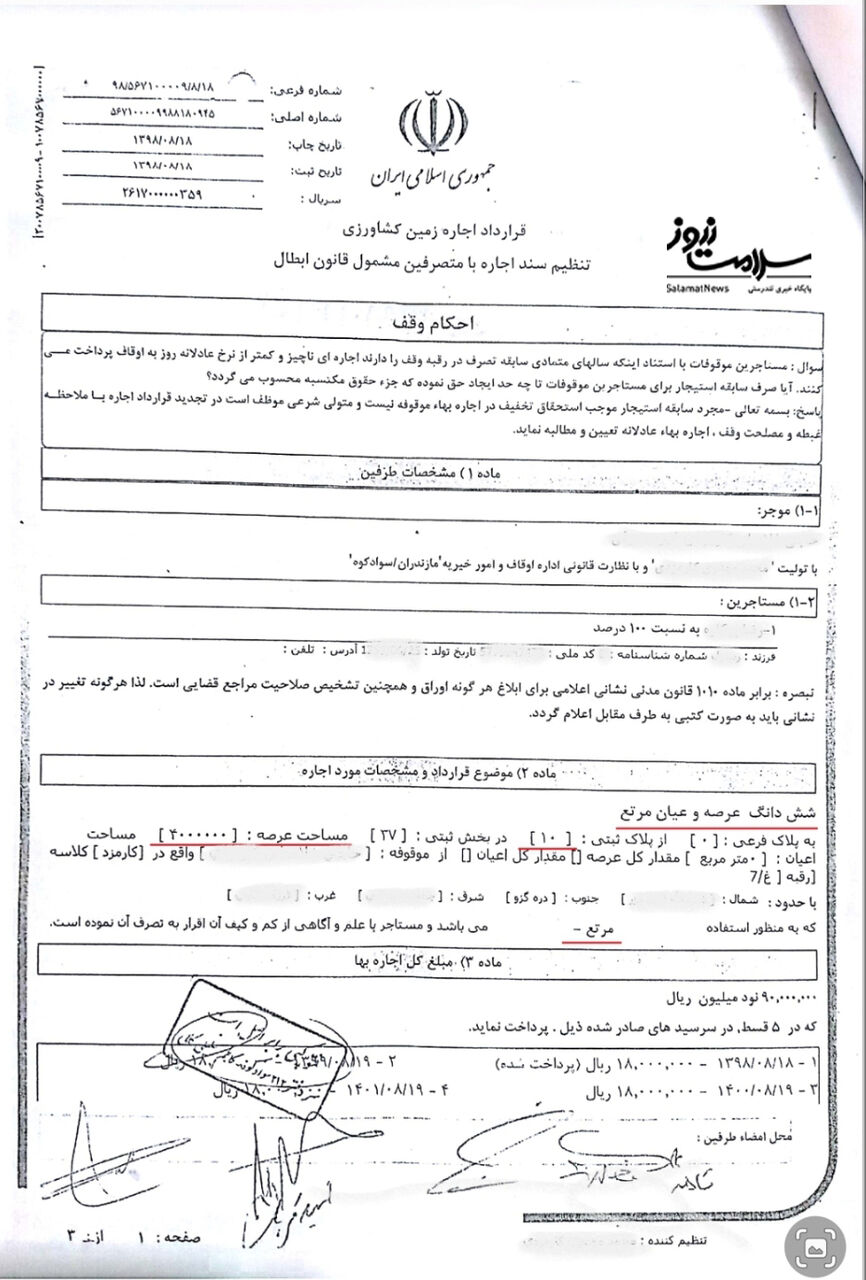 شماره فرعی: ۹۸/۵۶۷۱۰۰۰۰۹/۸/۱۸
شماره اصلی: ۵۶۷۱۰۰۰۰۹۹۸۸۱۸۰۹۴۵
تاریخ چاپ: ۱۳۹۸/۰۸/۱۸
تاریخ ثبت: ۱۳۹۸/۰۸/۱۸
سریال : ۲۶۱۷۰۰۰۰۰۰۳۵۹
جمهوری اسلامی ایران
قرارداد اجاره زمین کشاورزی
تنظیم سند اجاره با متصرفین مشمول قانون ابطال
سلامت نیوز
SalamatNews پایگاه خبری تندرستی
احکام وقف
سوال : مستاجرین موقوفات با استناد اینکه سالهای متمادی سابقه تصرف در رقبه وقف را دارند اجاره ای ناچیز و کمتر از نرخ عادلانه روز به اوقاف پرداخت می
کنند. آیا صرف سابقه استیجار برای مستاجرین موقوفات تا چه حد ایجاد حق نموده که جزء حقوق مکتسبه محسوب می گردد؟
پاسخ: بسمه تعالی -مجرد سابقه استیجار موجب استحقاق تخفیف در اجاره بهاء موقوفه نیست و متولی شرعی موظف است در تجدید قرارداد اجاره با ملاحظه
غبطه و مصلحت وقف ، اجاره بهاء عادلانه تعیین و مطالبه نماید.
ماده ۱) مشخصات طرفین
۱-۱) موجر:
با تولیت ' ' و با نظارت قانونی اداره اوقاف و امور خیریه'مازندران/سوادکوه'
۱-۲) مستاجرین :
۱- به نسبت ۱۰۰ درصد
فرزند : شماره شناسنامه : کد ملی : تاریخ تولد : آدرس : تلفن :
تبصره : برابر ماده ۱۰۱۰ قانون مدنی نشانی اعلامی برای ابلاغ هر گونه اوراق و همچنین تشخیص صلاحیت مراجع قضایی است. لذا هرگونه تغییر در
نشانی باید به صورت کتبی به طرف مقابل اعلام گردد.
ماده ۲) موضوع قرارداد و مشخصات مورد اجاره
شش دانگ عرصه و عیان مرتع
به پلاک فرعی : [ ۰ ] از پلاک ثبتی : [ ۱۰ ] در بخش ثبتی : [ ۲۷ ] مساحت عرصه : [ ۴۰۰۰۰۰۰ ] مساحت
اعیان : [ ۰متر مربع ] مقدار کل عرصه [] مقدار کل اعیان [] از موقوفه : [ ] واقع در [کارمزد ] کلاسه
[رقبه [ غ/7
با حدود : شمال : [ ] جنوب : [ دره گزو ] شرق : [ ] غرب : [ ]
که به منظور استفاده مرتع - می باشد و مستاجر با علم و آگاهی از کم و کیف آن اقرار به تصرف آن نموده است.
ماده ۳) مبلغ کل اجاره بها
۹۰,۰۰۰,۰۰۰ نود میلیون ریال
که در ۵ قسط, در سرسید های صادر شده ذیل . پرداخت نماید.
۱ - ۱۳۹۸/۰۸/۱۸ - ۱۸,۰۰۰,۰۰۰ ریال (پرداخت شده) ۲ - ۱۸,۰ ریال
۳ - ۱۴۰۰/۰۸/۱۹ - ۱۸,۰۰۰,۰۰۰ ریال ۴ - ۱۴۰۱/۰۸/۱۹ - ریال
محل امضاء طرفین :
تنظیم کننده :
صفحه : ۱ از ۳